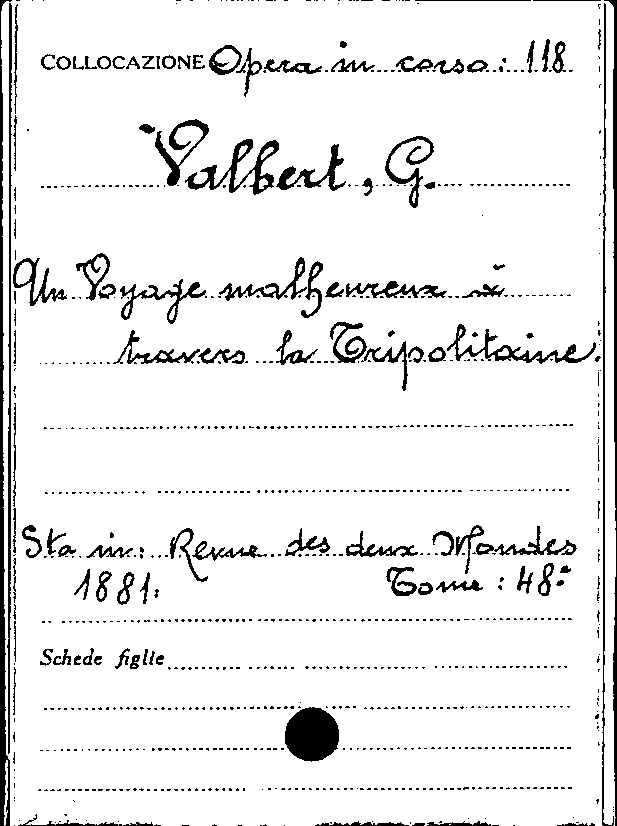 COLLOCAZIONE Opera in corso: 118
Valbert, G.
Un Voyage malheureux à
travers la Tripolitaine.
Sta in: Revue des deux Mondes
1881. Tome: 48º
Schede figlie